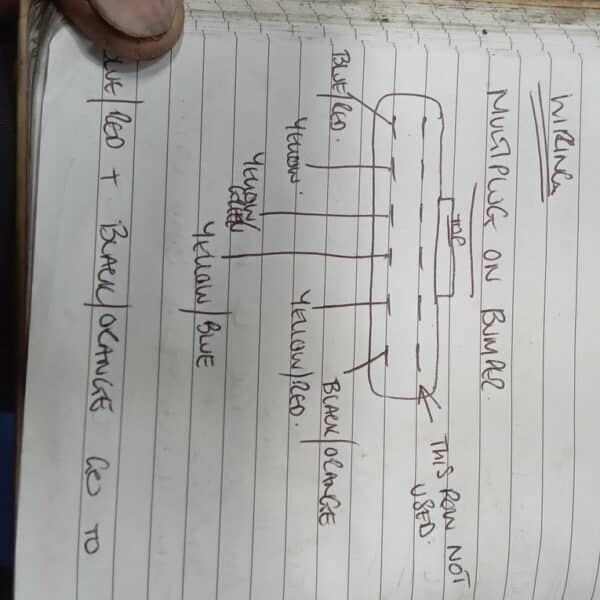 WIRING
MULTIPLUG ON BUMPER.
TOP
THIS ROW NOT
USED.
BLUE/RED.
YELLOW.
YELLOW/
GREEN
YELLOW/BLUE
YELLOW/RED.
BLACK/ORANGE
BLUE/RED + BLACK/ORANGE GO TO